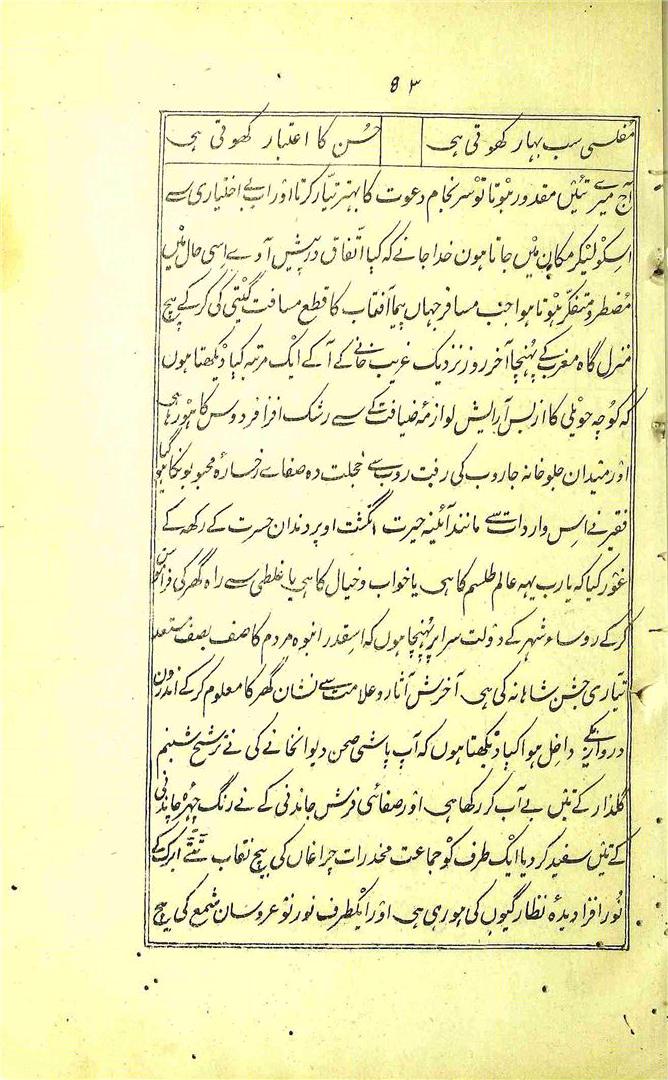 ۵۳
مُفلسی سب بہار کھوتی ہی حُسن کا اعتبار کھوتی ہی
آج میرے تئیں مقدور ہوتا تو سرنجام دعوت کا بہتر تیار کرتا اور اب بے اختیاری سے
اسکو لیکر مکان میں جاتا ہون خدا جانے کہ کیا اتفاق درپیش آوے اِسی حال میں
مُضطر و متفکر ہوتا ہوا جب مسافر جہاں پیما آفتاب کا قطع مسافت گیتی کی کر کے بیچ
منزل گاہ مغرب کے پہنچا آخر روز نزدیک غریب خانے کے آ کے ایک مرتبہ کیا دیکھتا ہوں
کہ کوچہ حویلی کا ازبس آرایش لوازمۂ ضیافت کے سے رشک افزا فردوس کا ہو رہا ہی
اور میدان جلوخانہ جاروب کی رفت روب سے خجلت دہ صفاے رخسارۂ محبوبونکا ہو گیا
فقیر نے اِس واردات سے مانند آئینہ حیرت انگشت اوپر دندان حسرت کے رکھ کے
غور کیا کہ یارب یہہ عالم طلسم کا ہی یا خواب و خیال کا ہی یا غلطی سے راہ گھر کی فراموش
کر کے روساء شہر کے دولت سرا پر پہنچا ہوں کہ اسقدر انبوہ مردم کا صف بصف مستعد
تیاری جشن شاہانہ کی ہی آخرش آثار و علامت سے نشان گھر کا معلوم کر کے اندرون
دروازیکے داخل ہوا کیا دیکھتا ہوں کہ آب پاشی صحن دیوانخانے کی نے ترشح شبنم
گلذار کے تئیں بے آب کر رکھا ہی اور صفائی فرش چاندنی کے نے رنگ چہرۂ چاندنی
کے تئیں سفید کر دیا ایک طرف کو جماعت مخدرات چراغاں کی بیچ نقاب تتئے ابرک کے
نُور افزا دیدۂ نظارگیوں کی ہو رہی ہی اور ایکطرف نور نو عروسان شمع کی بیچ